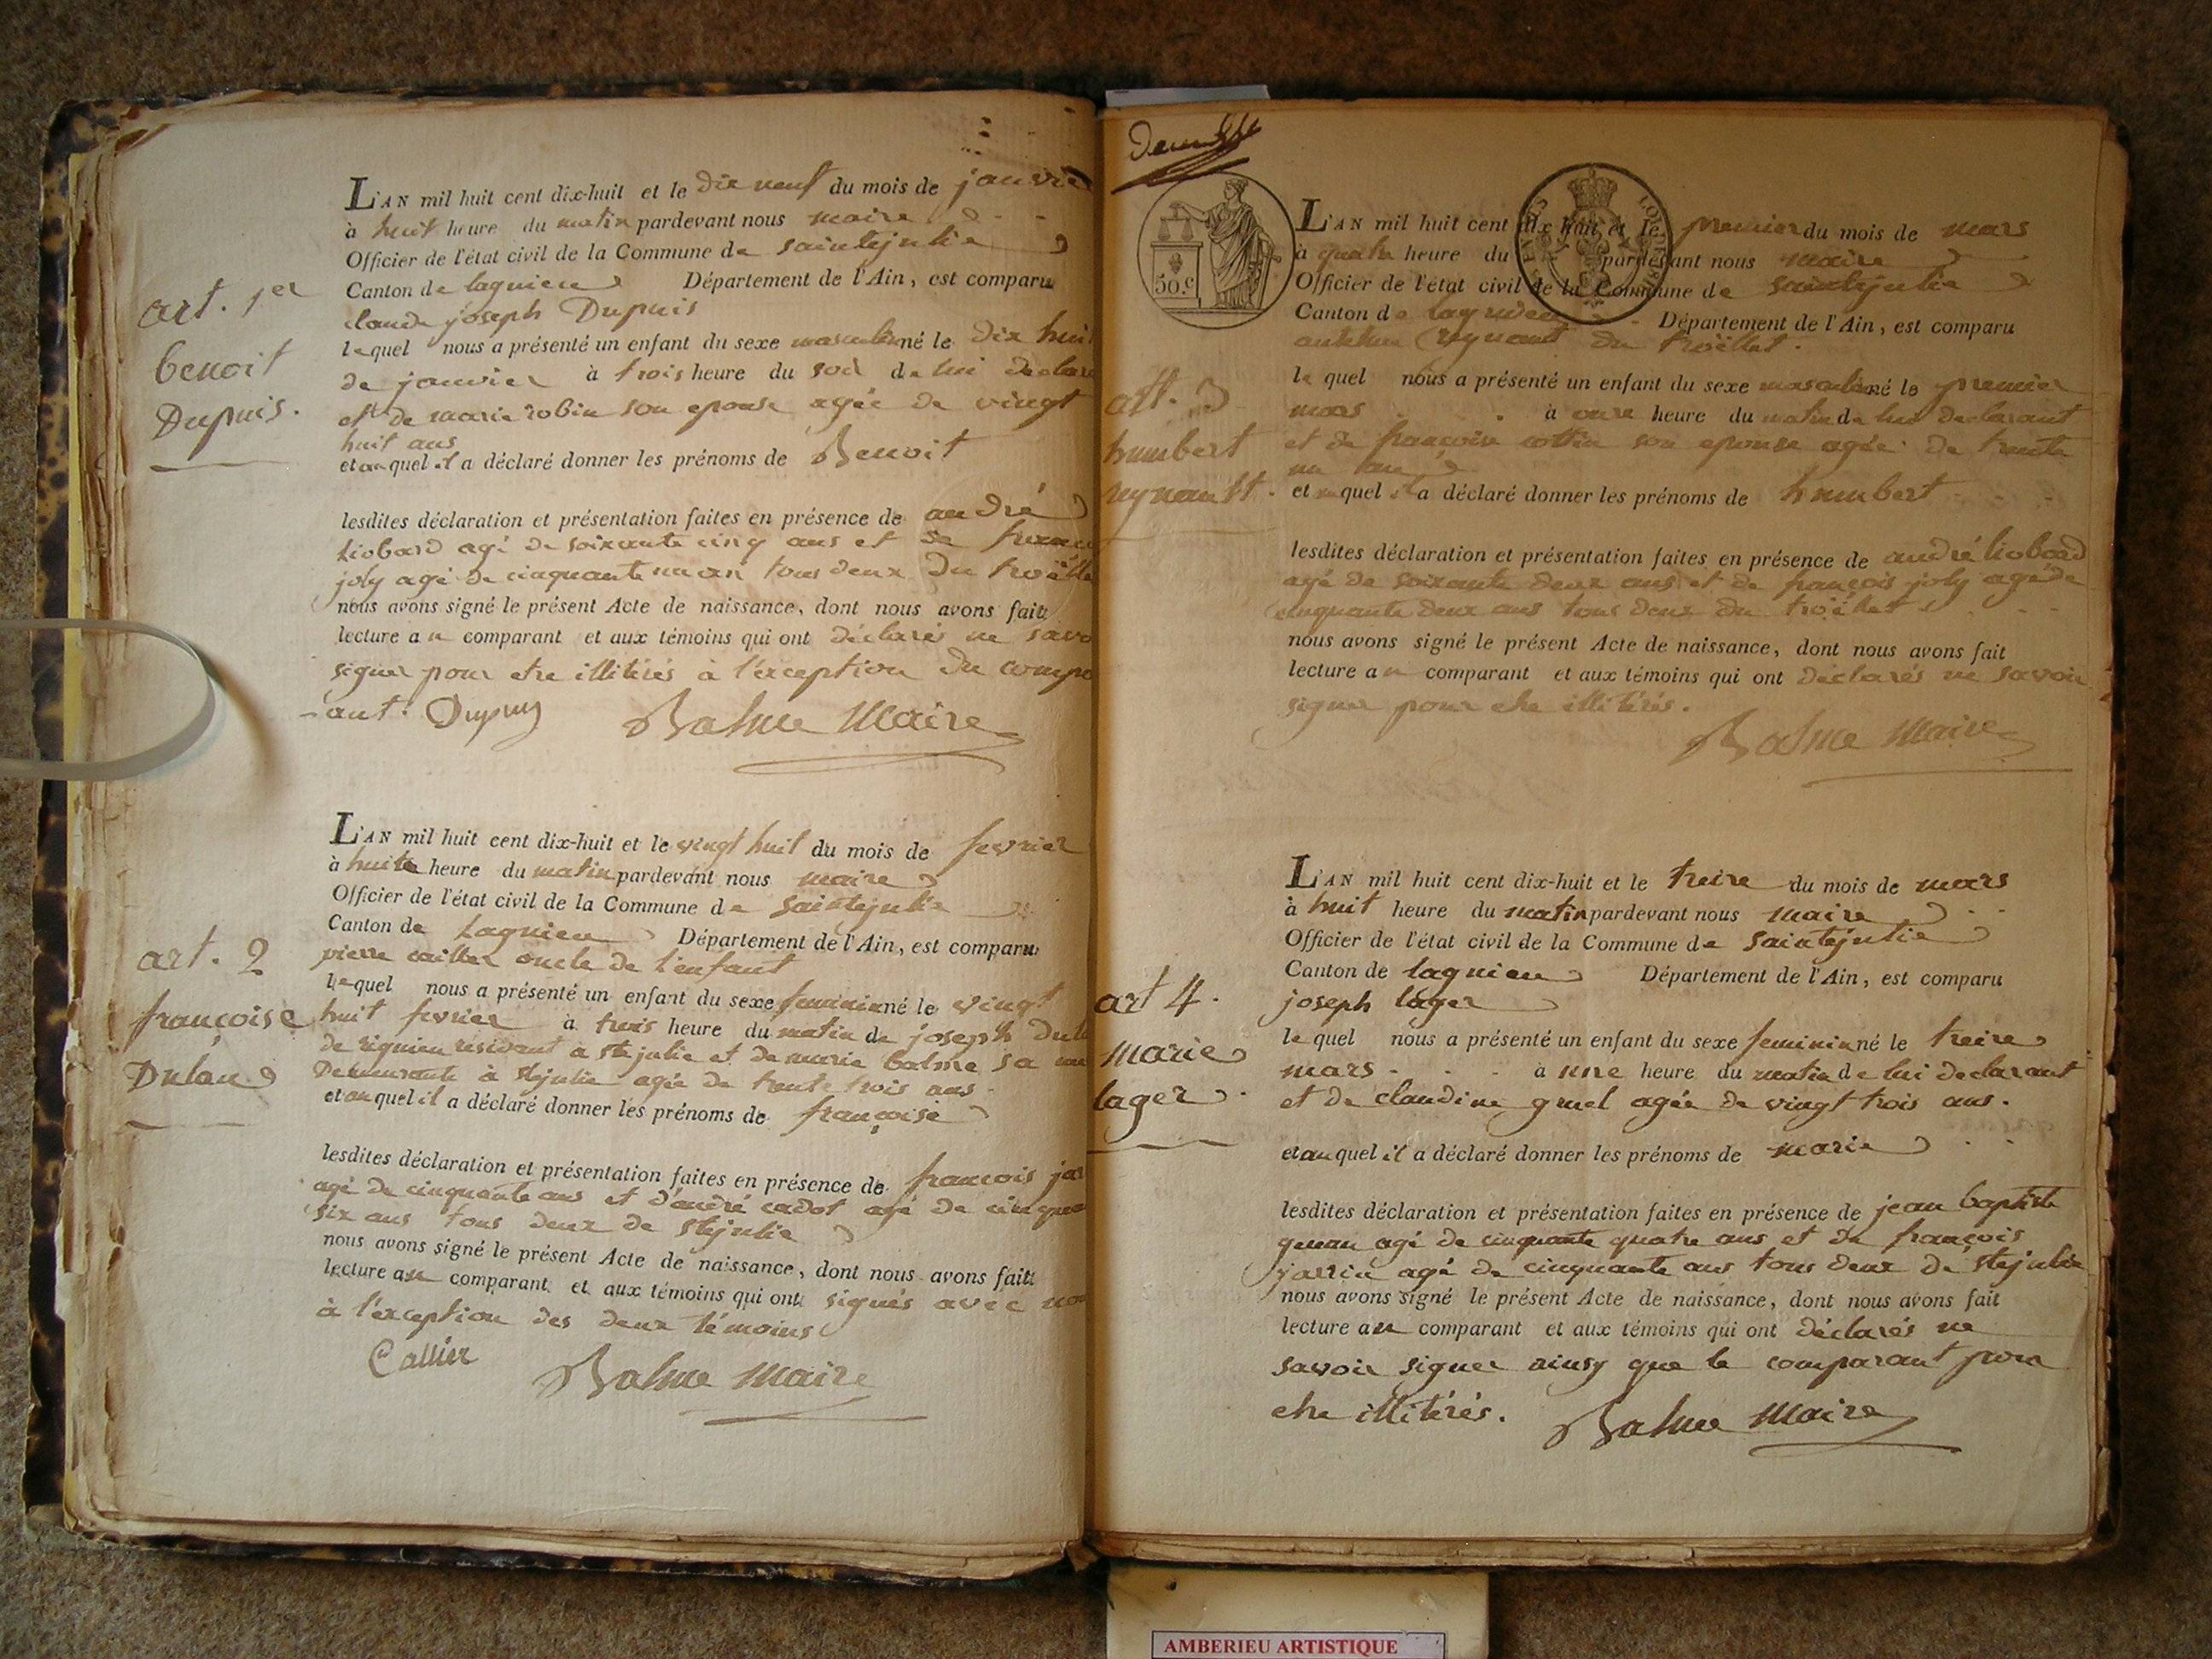 L'AN mil huit cent dix-huit et le dix neuf du mois de janvie
à huit heure du matin pardevant nous maire
Officier de l'état civil de la Commune de saintejulie
art. 1er
Canton de lagnieu Département de l'Ain, est comparu
claude joseph Dupuis
benoit
lequel nous a présenté un enfant du sexe masculin né le dix huit
de janvier à trois heure du soir de lui declara
Dupuis.
et de marie robin son epouse agée de vingt
huit ans
et au quel il a déclaré donner les prénoms de Benoit
lesdites déclaration et présentation faites en présence de andré
liobard agé de soixante cinq ans et de
joly agé de cinquante un an tous deux du troëlle
nous avons signé le présent Acte de naissance, dont nous avons fait
lecture au comparant et aux témoins qui ont déclarés ne savo
signer pour etre illitérés à l'exception du compa
-ant. Dupuy Balme Maire
L'AN mil huit cent dix-huit et le vingt huit du mois de fevrier
à huit heure du matin pardevant nous maire
Officier de l'état civil de la Commune de saintejulie
Canton de Lagnieu Département de l'Ain, est comparu
art. 2
pierre oncle de l'enfant
lequel nous a présenté un enfant du sexe feminin né le vingt
françoise
huit fevrier à trois heure du matin de joseph
de rignieu residant à stejulie et de marie balme sa
Dulau
demeurante à stejulie agée de trente trois ans
et au quel il a déclaré donner les prénoms de françoise
lesdites déclaration et présentation faites en présence de francois jar
agé de cinquante ans et d'andré cadot agé de cinqua
six ans tous deux de stejulie
nous avons signé le présent Acte de naissance, dont nous avons fait
lecture au comparant et aux témoins qui ont signés avec nou
à l'exception des deux témoins
Callier Balme Maire
50.c
L'AN mil huit cent dix huit et le premier du mois de mars
à quatre heure du pardevant nous maire
Officier de l'état civil de la Commune de saintejulie
Canton de lagnieu Département de l'Ain, est comparu
du troëllet.
art. 3
le quel nous a présenté un enfant du sexe masculin né le premier
mars à onze heure du matin de lui declarant
humbert
et de françoise cottin son epouse agée de trente
un ans
reynault.
et au quel il a déclaré donner les prénoms de humbert
lesdites déclaration et présentation faites en présence de andré liobard
agé de soixante deux ans et de françois joly agé de
cinquante deux ans tous deux du troëllet
nous avons signé le présent Acte de naissance, dont nous avons fait
lecture au comparant et aux témoins qui ont déclarés ne savoir
signer pour etre illitérés.
Balme Maire
L'AN mil huit cent dix-huit et le treize du mois de mars
à huit heure du matin pardevant nous maire
Officier de l'état civil de la Commune de saintejulie
Canton de lagnieu Département de l'Ain, est comparu
art 4.
joseph lager
le quel nous a présenté un enfant du sexe feminin né le treize
marie
mars à une heure du matin de lui declarant
lager.
et de claudine gruel agée de vingt trois ans.
et au quel il a déclaré donner les prénoms de marie
lesdites déclaration et présentation faites en présence de jean baptiste
agé de cinquante quatre ans et de françois
jarrin agé de cinquante ans tous deux de stejulie
nous avons signé le présent Acte de naissance, dont nous avons fait
lecture au comparant et aux témoins qui ont déclarés ne
savoir signer ainsy que le comparant pour
etre illitérés. Balme Maire
AMBERIEU ARTISTIQUE